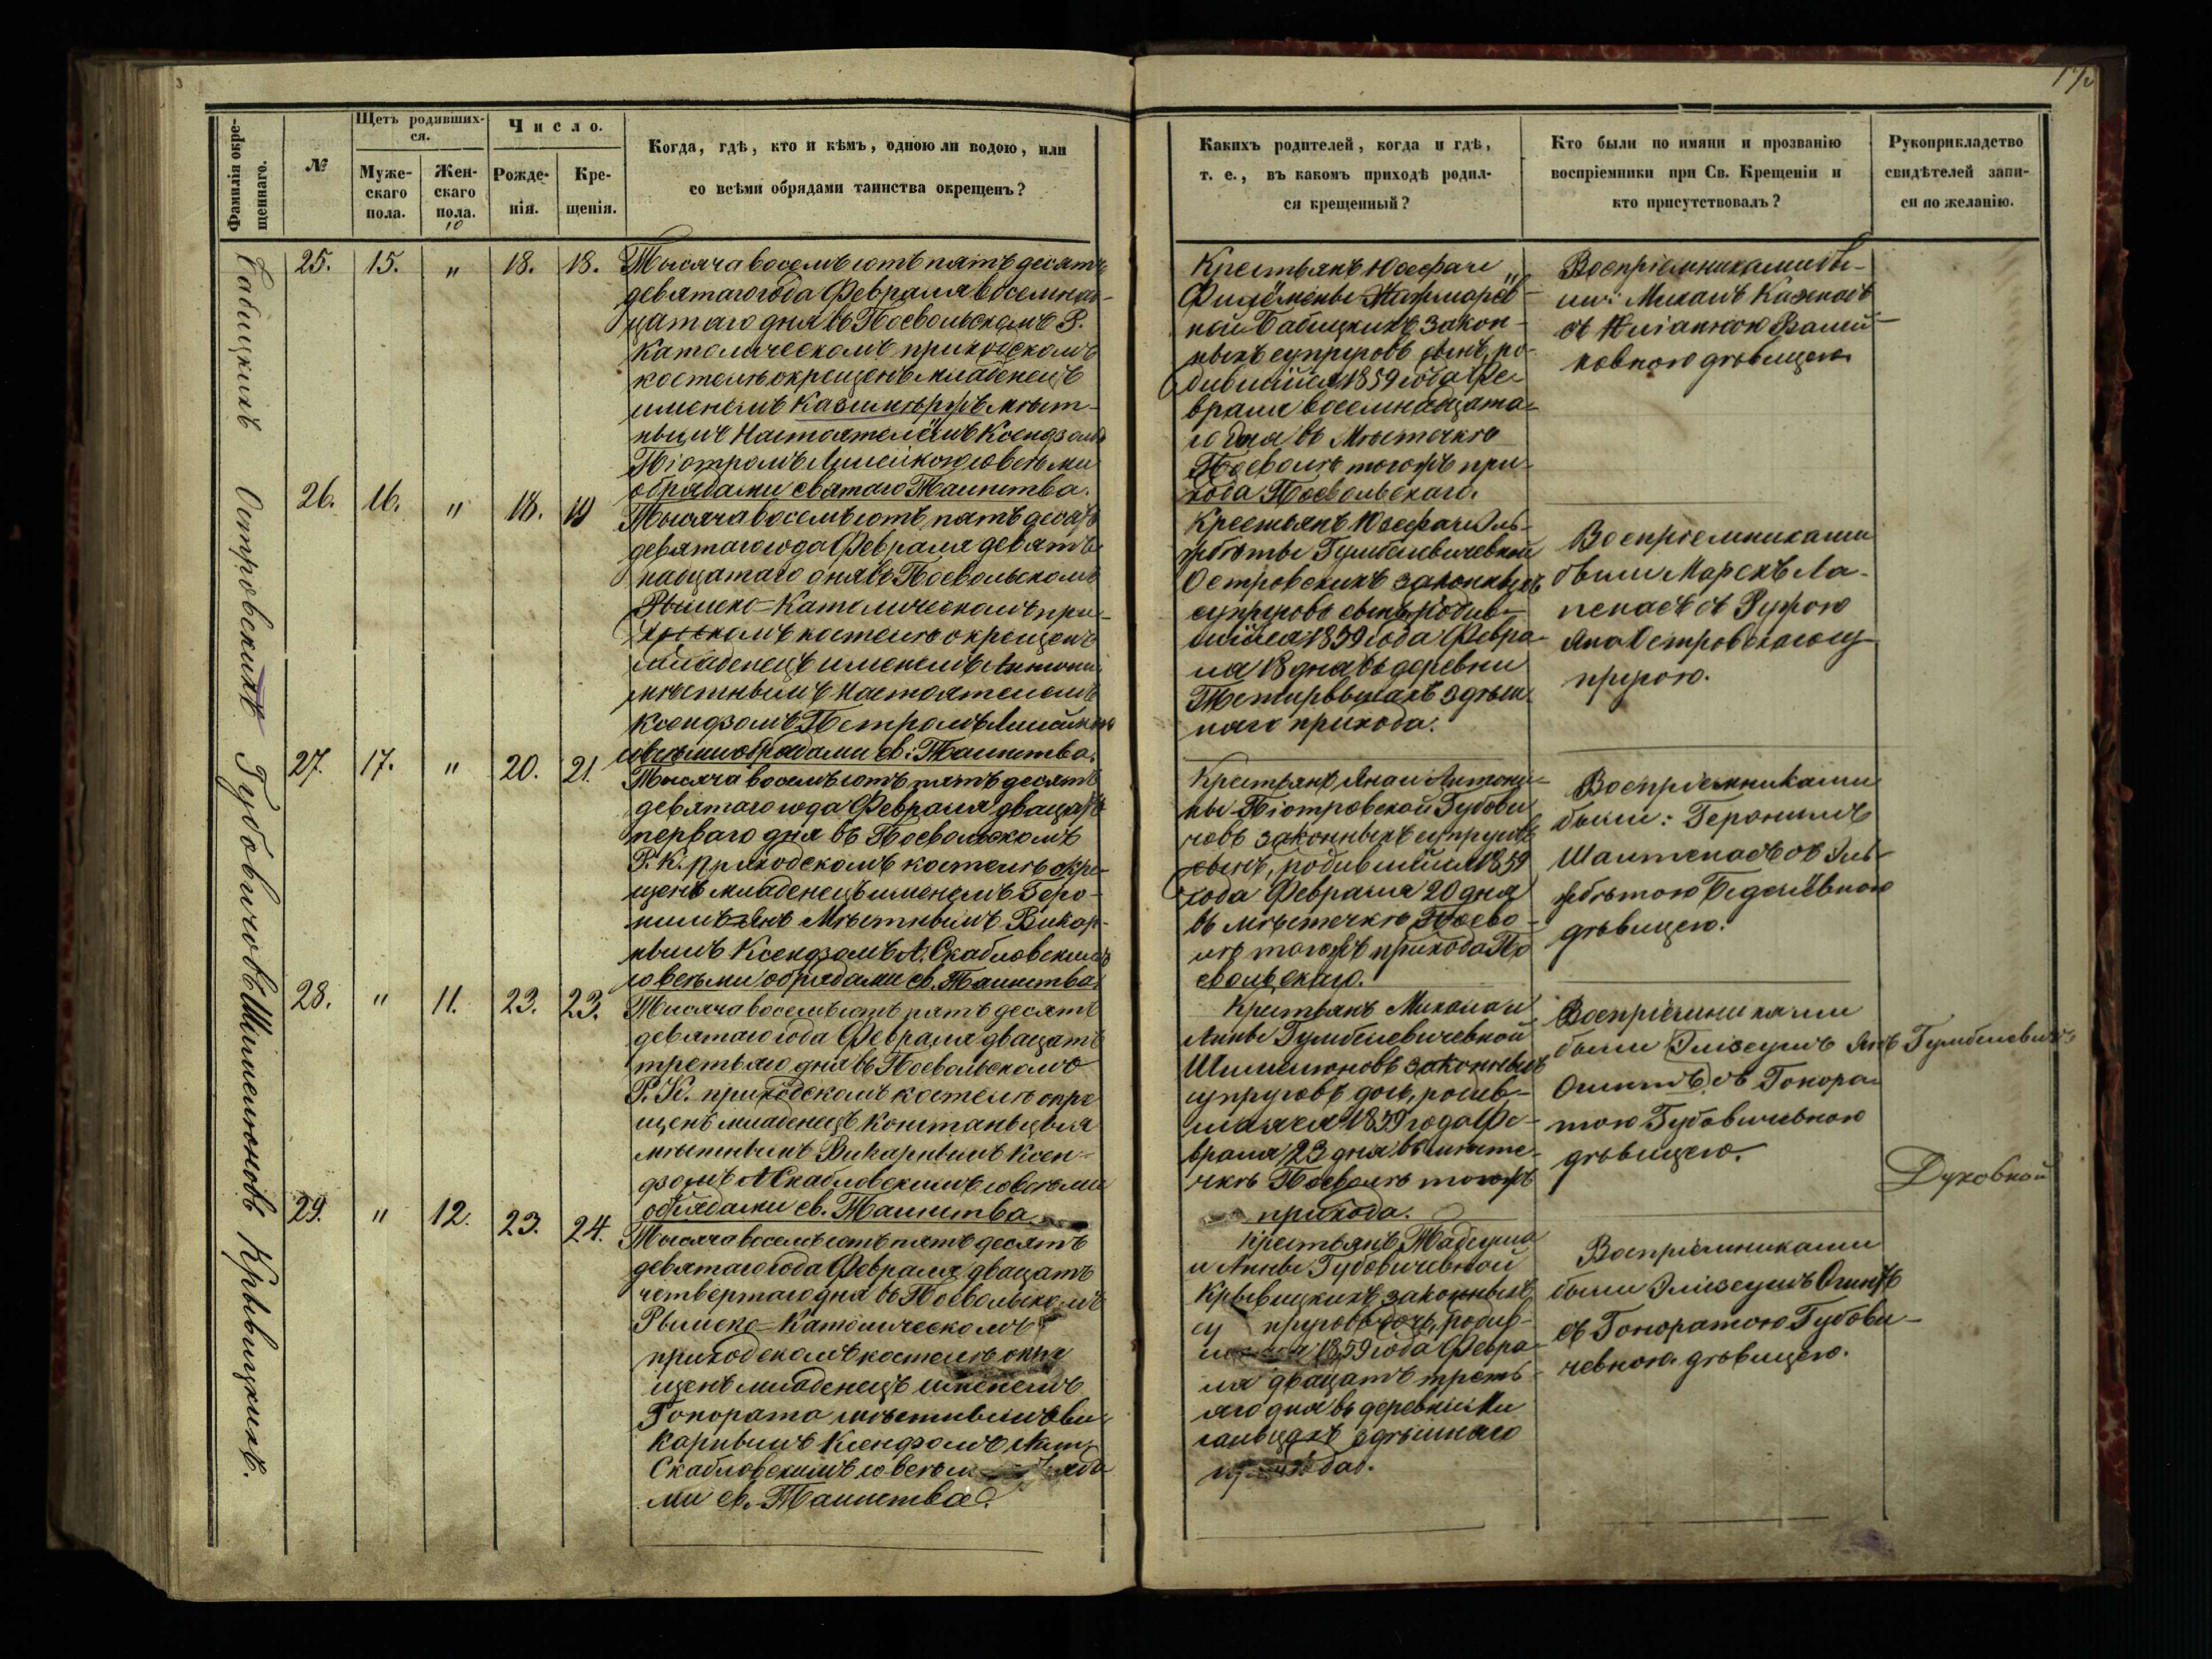 17
Фамилія окре-
щеннаго.
№
Щетъ родявших-
ся.
Муже-
скаго
пола.
Жен-
скаго
пола.
10
Число.
Рожде-
нія.
Кре-
щенія.
Когда, гдѣ, кто и кѣмъ, одною ли водою, или
со всѣми обрядами таинства окрещенъ?
Какихъ родителей, когда и гдѣ,
т. е., въ какомъ приходѣ родил-
ся крещенный?
Кто были по имяни и прозванію
воспріемники при Св. Крещеніи и
кто присутствовалъ?
Рукоприкладство
свидѣтелей запи-
си по желанію.
Бабицкихъ
25. 15. " 18. 18.
Тысяча восемьсотъ пятьдесятъ
девятаго года Февраля восемнад-
цатаго дня въ Посвольскомъ Р.
Католическомъ приходскомъ
костелѣ окрещенъ младенецъ
именемъ Казимѣръ мѣст-
нымъ Настоятелемъ Ксендзомъ
Піотромъ со всѣми
обрядами святаго Таинства.
Крестьянъ Юзефа и
Филёмены
ной Бабицкихъ закон-
ныхъ супруговъ сынъ, ро-
дившійся 1859 года Фе-
враля восемнадцата-
го дня въ Мѣстечкѣ
Посволѣ тогожъ при-
хода Посвольскаго.
Воспріемниками бы-
ли: Михаилъ
съ
ковною дѣвицею
Островскихъ
26. 16. " 18. 19
Тысяча восемьсотъ пятьдесятъ
девятаго года Февраля девят-
надцатаго дня въ Посвольскомъ
Рымско=Католическомъ при-
ходскомъ костелѣ окрещенъ
младенецъ именемъ Антоній
мѣстнымъ Настоятелемъ
Ксендзомъ Петромъ
со всѣми обрядами св: Таинства.
Крестьянъ Юзефа и Эль-
жбѣты Гумбелевичевной
Островскихъ законныхъ
супруговъ сынъ, родив-
шійся 1859 года Февра-
ля 18 дня въ деревни
здѣш-
няго прихода.
Воспріемниками
были Марекъ Ла-
пенасъ съ
Яна Островскаго су-
пругою.
Губовичовъ
27. 17. " 20. 21.
Тысяча восемьсотъ пятьдесятъ
девятаго года Февраля двацать
перваго дня въ Посвольскомъ
Р. К. Приходскомъ костелѣ окре-
щенъ младенецъ именемъ Геро-
нимъ Янъ Мѣстнымъ Викар-
нымъ Ксендзомъ А. Скабловскимъ
со всѣми обрядами св. Таинства.
Крестьянъ Яна и Антони-
ны Піотровской Губови-
човъ законныхъ супруговъ
сынъ, родившійся 1859
года Февраля 20 дня
въ мѣстечкѣ Посво-
лѣ тогожъ прихода По-
свольскаго.
Воспріемниками
были: Геронимъ
съ Эль-
жбѣтою
дѣвицею.
Шимелюновъ
28. " 11. 23. 23.
Тысяча восемьсотъ пятьдесятъ
девятаго года Февраля двацать
третьяго дня въ Посвольскомъ
Р. К. приходскомъ костелѣ окре-
щенъ младенецъ Констанцыя
мѣстнымъ Викарнымъ Ксен-
дзомъ А Скабловскимъ со всѣми
обрядами св. Таинства.
Крестьянъ Михала и
Анны Гумбелевичевной
Шимелюновъ законныхъ
супруговъ дочь, родив-
шаяся 1859 года Фе-
враля 23 дня въ мѣсте-
чкѣ Посволѣ тогожъ
прихода.
Воспріемниками
были Элізеушъ
съ Гонора-
тою Губовичевною
дѣвицею.
Янъ Гумбелевичъ
Духовной
Крывицкихъ.
29. " 12. 23. 24.
Тысяча восемьсотъ пятьдесятъ
девятаго года Февраля двацать
четвертаго дня въ Посвольскомъ
Рымско=Католическомъ
приходскомъ костелѣ окре
щенъ младенецъ именемъ
Гонората мѣстнымъ Ви-
карнымъ Ксендзомъ Ант.
Скабловскимъ со всѣми
ми св. Таинства.
Крестьянъ Тадеуша
и Анны Губовичевной
Крывицкихъ законныхъ
супруговъ дочь, родив-
1859 года Февра-
ля двацать треть-
яго дня въ деревни
здѣшняго
прихода.
Воспріемниками
были Элізеушъ
съ Гоноратою Губови-
чевною дѣвицею.